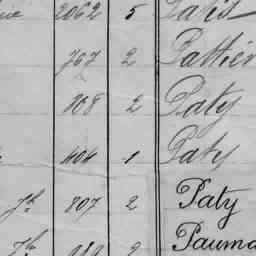 2062 5 Patis
767 2 Pattier
808 2 Paty
404 1 Paty
Jh 807 2 Paty
Jh 2 Pauma